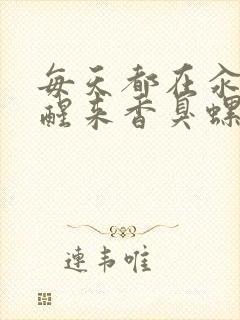 每天都在氽
醒来香臭螺
連韦唯